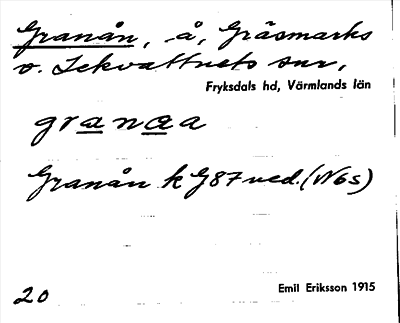 Granån, å, Gräsmarks
o. Lekvattnets snr,
Fryksdals hd, Värmlands län
granaa
Granån k G87 ved. (N6s)
Emil Eriksson 1915
20